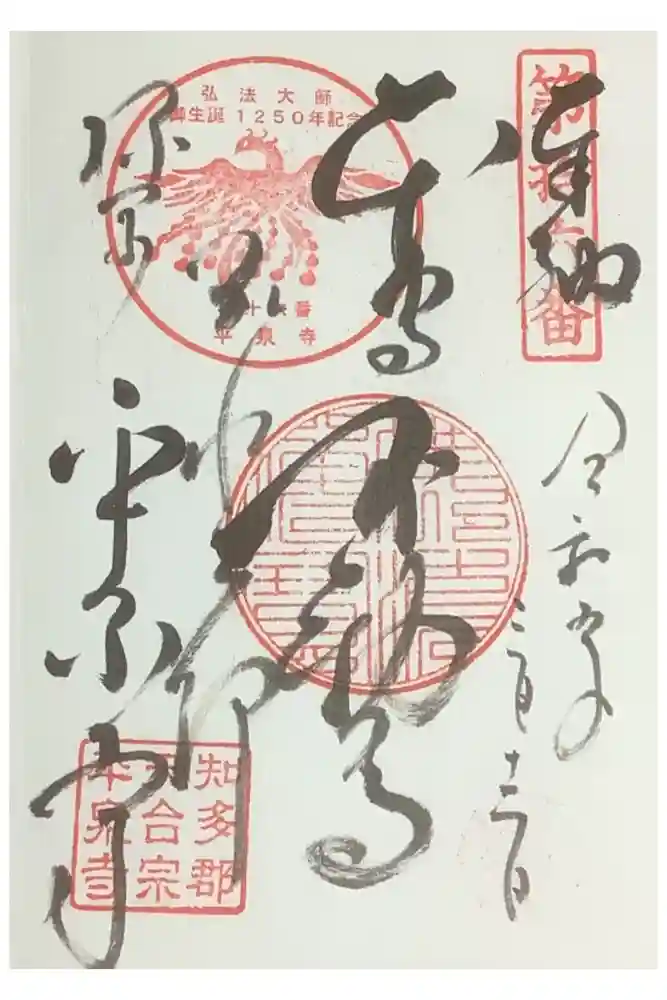 第拾六番
奉納
令和五年
三月
本尊
不動尊
弘法大師
御生誕1250年記念
十六番
平泉寺
平泉寺
知多郡
天台宗
平泉寺